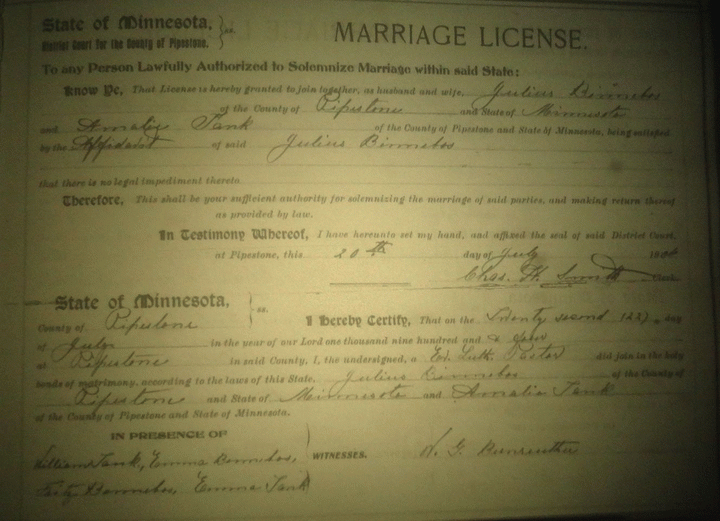 State of Minnesota, } ss.
District Court for the County of Pipestone.
MARRIAGE LICENSE.
To any Person Lawfully Authorized to Solemnize Marriage within said State:
Know Ye, That License is hereby granted to join together, as husband and wife, Julius Binnebos
of the County of Pipestone and State of Minnesota
and Amalia Tank of the County of Pipestone and State of Minnesota, being satisfied
by the Affidavit of said Julius Binnebos
that there is no legal impediment thereto.
Therefore, This shall be your sufficient authority for solemnizing the marriage of said parties, and making return thereof
as provided by law.
In Testimony Whereof, I have hereunto set my hand, and affixed the seal of said District Court,
at Pipestone, this 20th day of July 190
Chas. H. Smith Clerk.
State of Minnesota, } ss.
County of Pipestone
I Hereby Certify, That on the Twenty second (22) day
of July in the year of our Lord one thousand nine hundred and
at Pipestone in said County, I, the undersigned, a Ev. Luth. Pastor did join in the holy
bonds of matrimony, according to the laws of this State, Julius Binnebos of the County of
Pipestone and State of Minnesota and Amalia Tank
of the County of Pipestone and State of Minnesota.
IN PRESENCE OF
William Tank, Emma Binnebos,
Fritz Binnebos, Emma Tank
} WITNESSES.